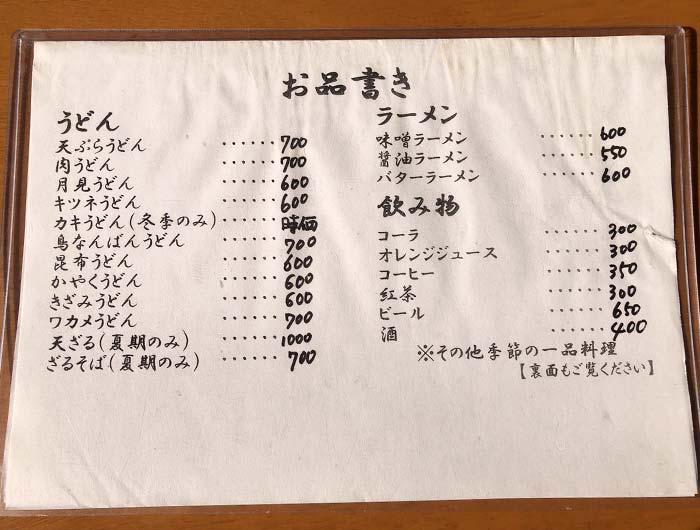 お品書き
うどん
天ぷらうどん ・・・・・・ 700
肉うどん ・・・・・・ 700
月見うどん ・・・・・・ 600
キツネうどん ・・・・・・ 600
カキうどん(冬季のみ) ・・・・・・ 時価
鳥なんばんうどん ・・・・・・ 700
昆布うどん ・・・・・・ 600
かやくうどん ・・・・・・ 600
きざみうどん ・・・・・・ 600
ワカメうどん ・・・・・・ 700
天ざる(夏期のみ) ・・・・・・ 1000
ざるそば(夏期のみ) ・・・・・・ 700
ラーメン
味噌ラーメン ・・・・・・ 600
醤油ラーメン ・・・・・・ 550
バターラーメン ・・・・・・ 600
飲み物
コーラ ・・・・・・ 300
オレンジジュース ・・・・・・ 300
コーヒー ・・・・・・ 350
紅茶 ・・・・・・ 300
ビール ・・・・・・ 650
酒 ・・・・・・ 400
※その他季節の一品料理
【裏面もご覧ください】